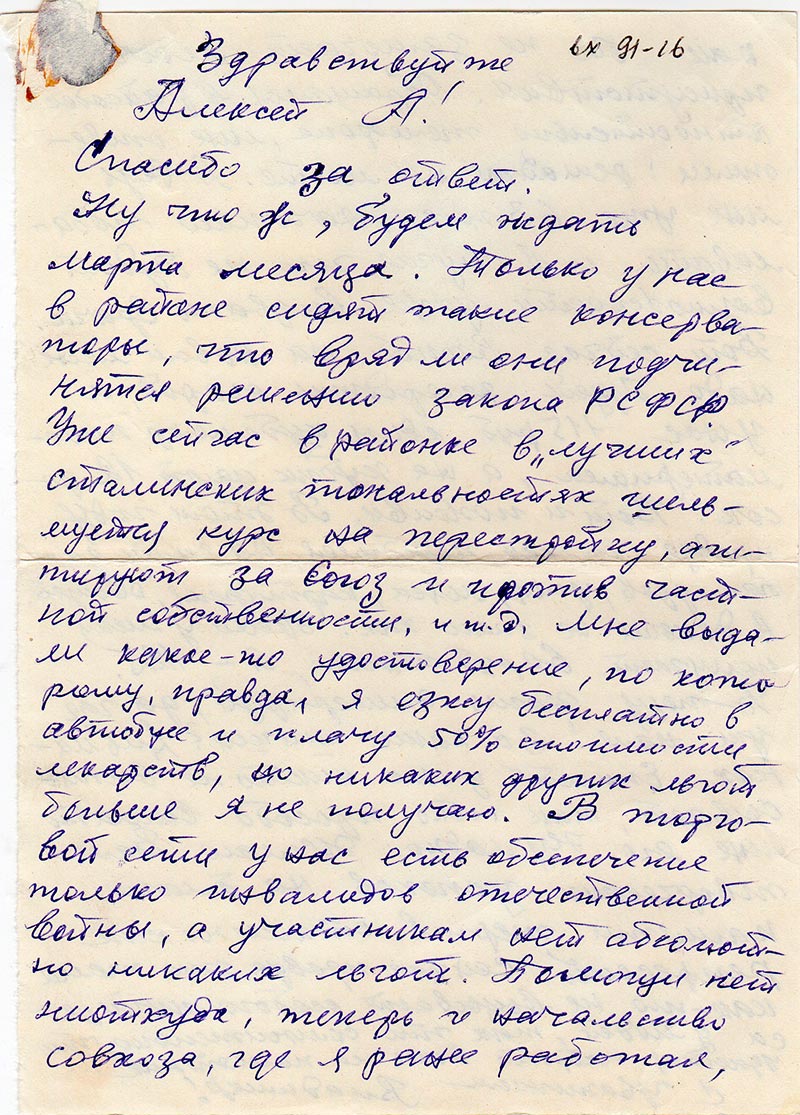 вх 91-16
Здравствуйте
Алексей А!
Спасибо за ответ.
Ну что ж, будем ждать
марта месяца. Только у нас
в районе сидят такие консерва-
торы, что вряд ли они подчи-
нятся решению закона РСФСР
Уже сейчас в районке в „лучших"
сталинских тональностях шель-
муется курс на перестройку, аги-
тируют за Союз и против част-
ной собственности, и т.д. Мне выда-
ли какое-то удостоверение, по кото
рому, правда, я езжу бесплатно в
автобусе и плачу 50% стоимости
лекарств, но никаких других льгот
больше я не получаю. В торго-
вой сети у нас есть обеспечение
только инвалидов отечественной
войны, а участникам нет абсолют-
но никаких льгот. Помощи нет
ниоткуда, теперь и начальство
совхоза, где я ранее работал,